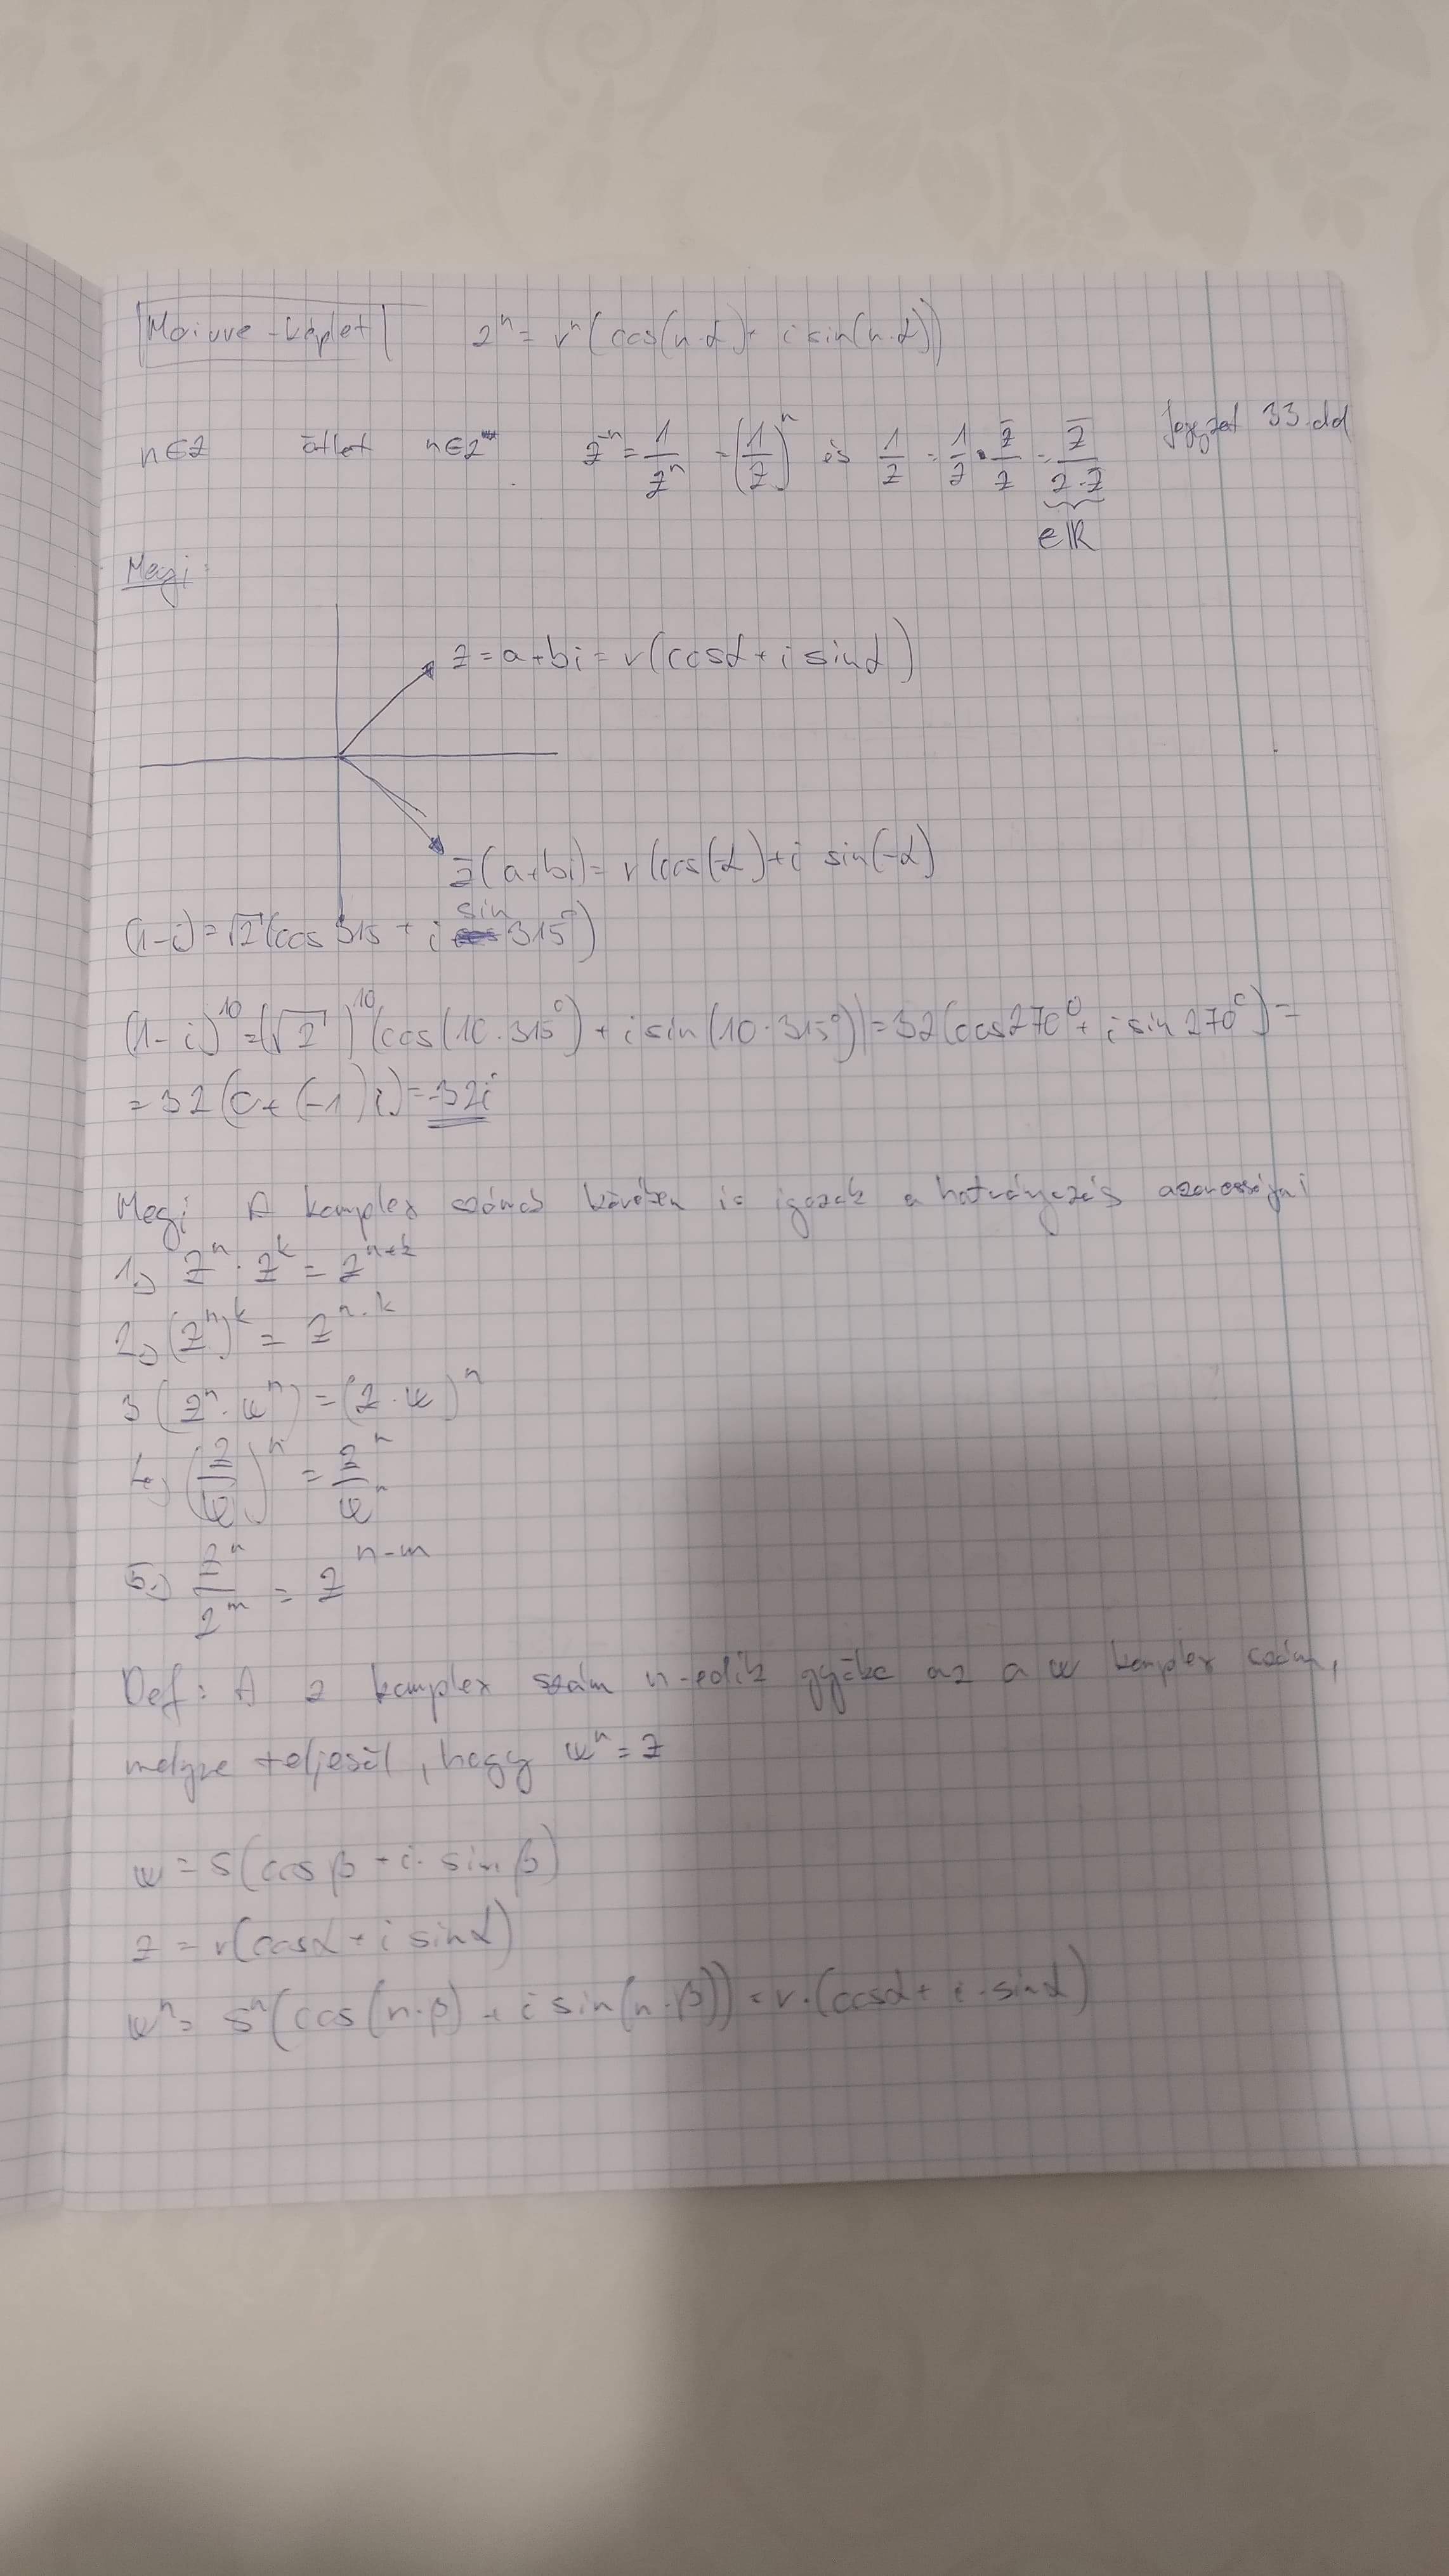 Moivre-képlet zⁿ = rⁿ(cos(n·α) + i sin(n·α))
n∈Z n∈Z z⁻ⁿ = 1/zⁿ = (1/z)ⁿ és 1/z = 1/z · z̄/z̄ = z̄/(z·z̄) 33. old
∈ℝ
Megj:
z = a+bi = r(cosα + i sinα)
z̄(a+bi) = r(cos(-α)+i sin(-α)
sin
(1-i) = √2(cos 315 + i 315°)
(1-i)¹⁰ = (√2)¹⁰(cos(10·315°) + i sin(10·315°)) = 32(cos270° + i sin 270°) =
= 32(0+(-1)i) = -32i
Megj: A komplex számok körében is igazak a hatványozás azonosságai
1.) zⁿ · zᵏ = zⁿ⁺ᵏ
2.) (zⁿ)ᵏ = zⁿ·ᵏ
3 (zⁿ·wⁿ) = (z·w)ⁿ
4.) (z/w)ⁿ = zⁿ/wⁿ
5.) zⁿ/zᵐ = zⁿ⁻ᵐ
Def: A z komplex szám n-edik gyöke az a w komplex szám,
melyre teljesül, hogy wⁿ = z
w = s(cosβ + i· sinβ)
z = r(cosα + i sinα)
wⁿ = sⁿ(cos(n·β) + i sin(n·β)) = r·(cosα + i·sinα)